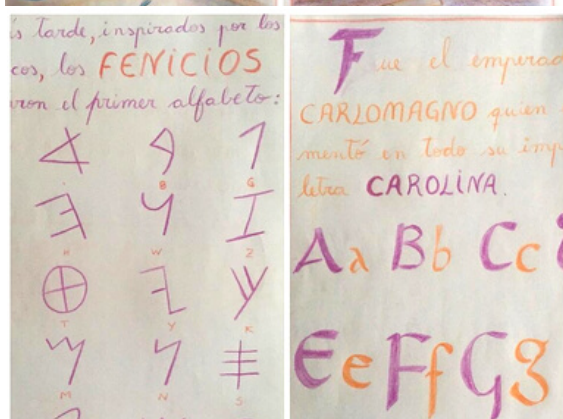 is tarde, inspirados por los
cos, los FENiCiOS
ron el primer alfabeto:
𐤀 𐤁 𐤂
B G
𐤄 𐤅 𐤆
H W Z
𐤈 𐤉 𐤊
T Y K
𐤌 𐤍 𐤎
M N S
Fue el emperad
CARLOMAGNO quien
mentó en todo su impe
letra CAROLiNA.
Aa Bb Cc
Ee Ff Gg